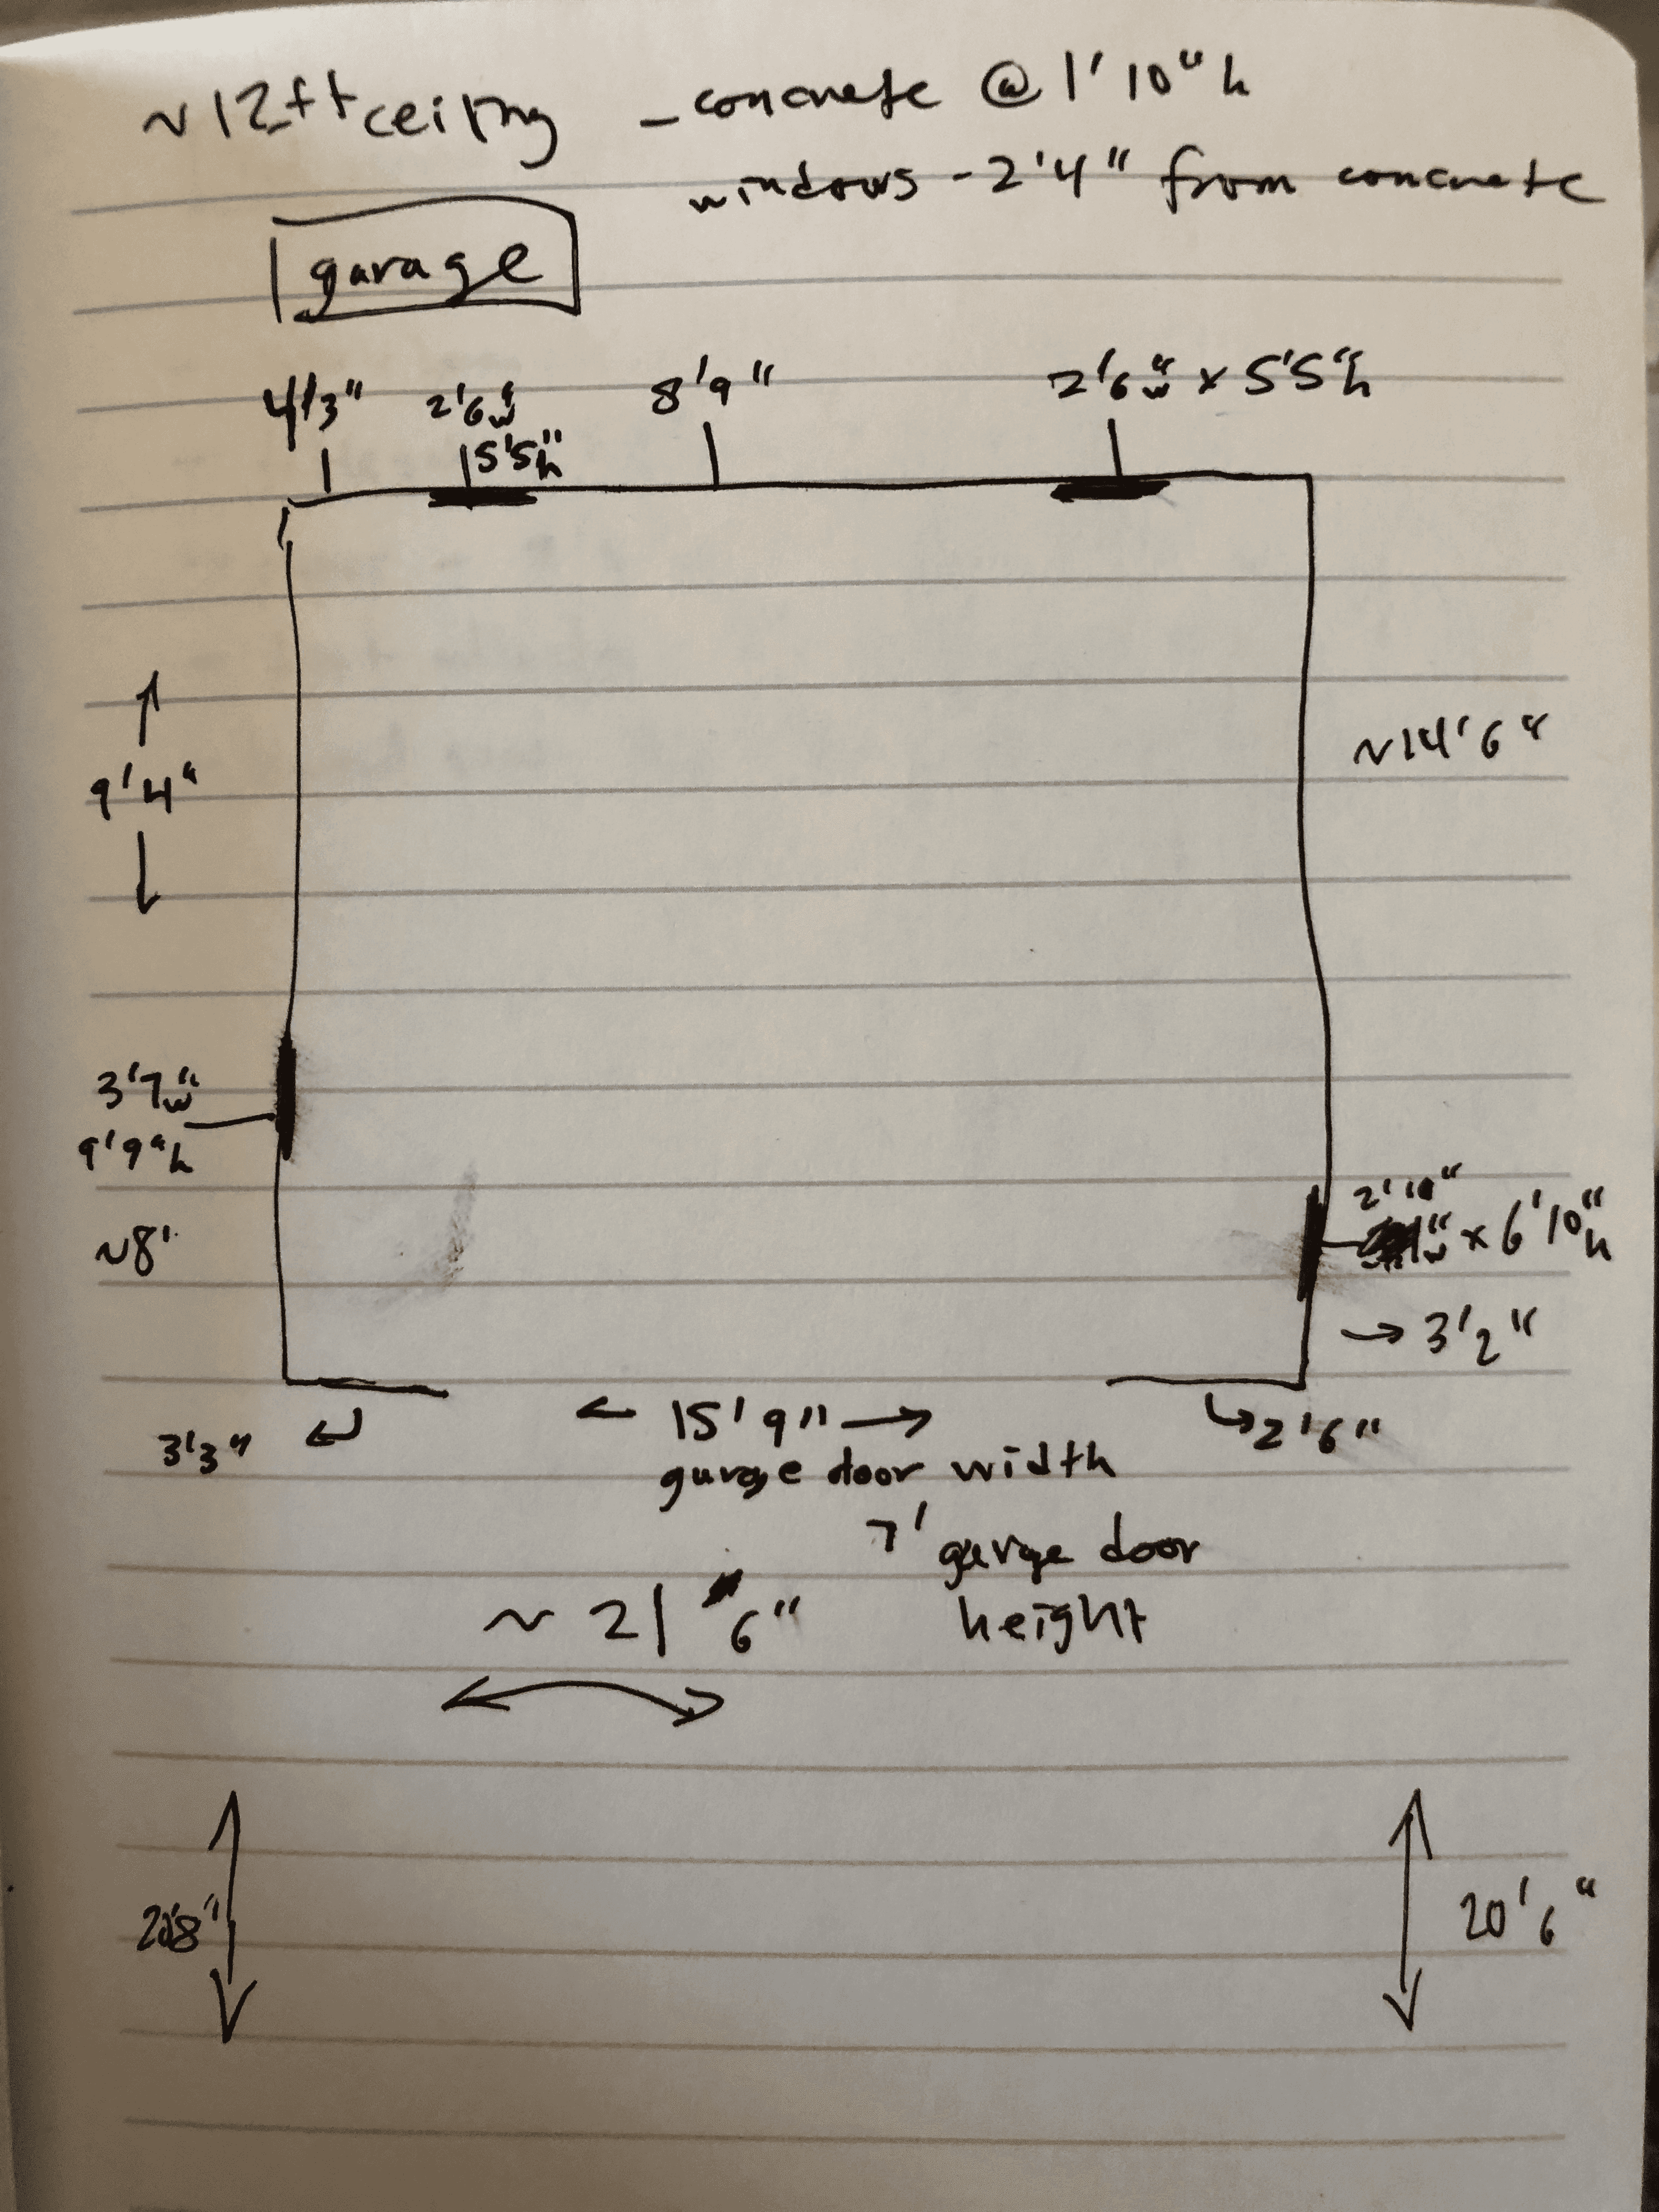 ~12ft ceiling - concrete @ 1'10" h
windows - 2'4" from concrete
garage
4'3" 2'6"w 8'9" 2'6"w x 5'5"h
5'5"h
~14'6"
9'4"
3'7"w
9'9"h
2'10"
"w x 6'10"h
~8'
3'2"
3'3" 15'9" 2'6"
garage door width
7' garage door
height
~ 21 6"
20'6"